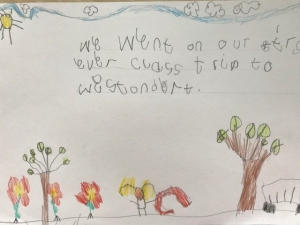 we went on our firs
ever cuass trip to
westondert.